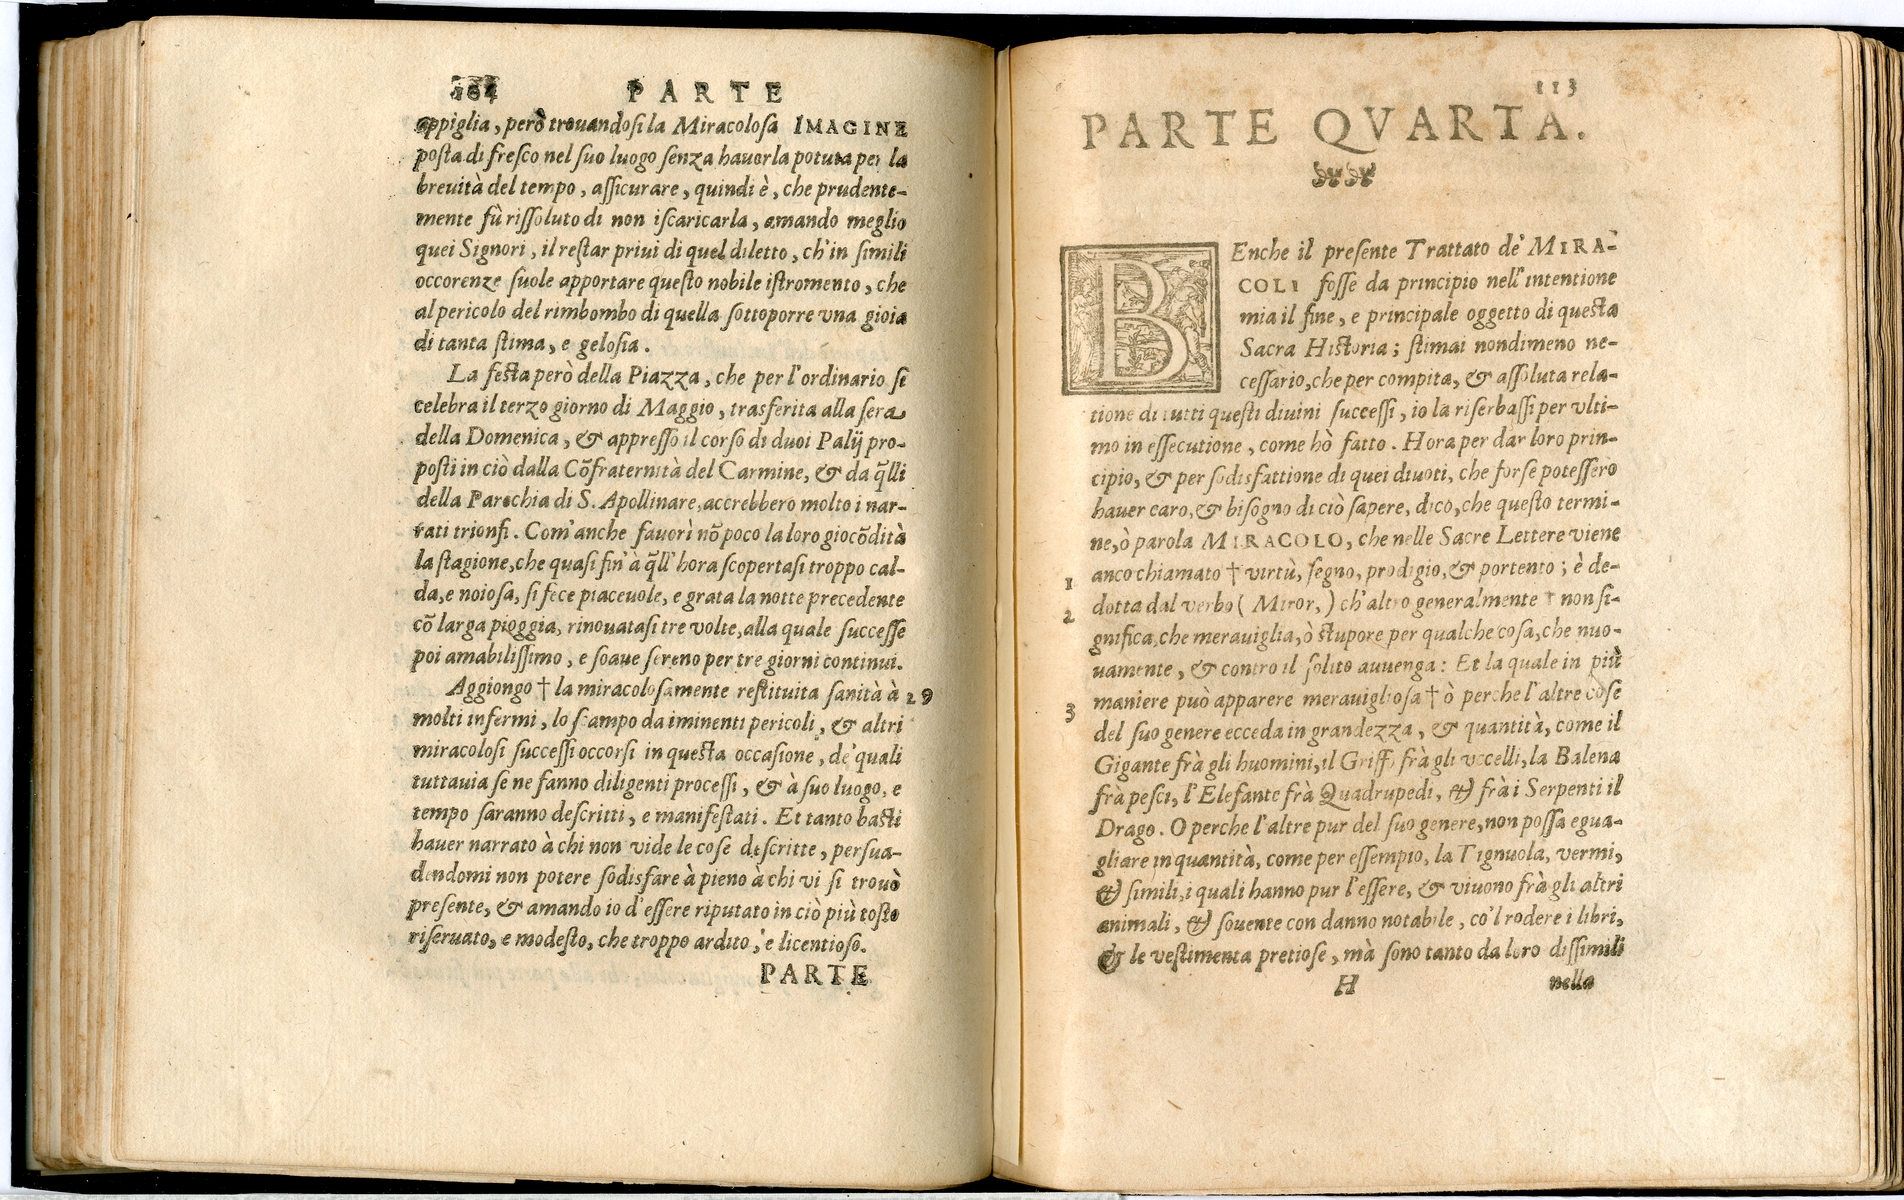 104 PARTE
appiglia, però trouandosi la Miracolosa IMAGINE
posta di fresco nel suo luogo senza hauerla potuta per la
breuità del tempo, assicurare, quindi è, che prudente-
mente fù rissoluto di non iscaricarla, amando meglio
quei Signori, il restar priui di quel diletto, ch'in simili
occorenze suole apportare questo nobile istromento, che
al pericolo del rimbombo di quella sottoporre vna gioia
di tanta stima, e gelosia.
La festa però della Piazza, che per l'ordinario si
celebra il terzo giorno di Maggio, trasferita alla sera
della Domenica, & appresso il corso di duoi Palij pro-
posti in ciò dalla Cõfraternità del Carmine, & da q̃lli
della Parochia di S. Apollinare, accrebbero molto i nar-
rati trionfi. Com'anche fauorì nõ poco la loro giocõdità
la stagione, che quasi fin'à q̃ll'hora scopertasi troppo cal-
da, e noiosa, si fece piaceuole, e grata la notte precedente
cõ larga pioggia, rinouatasi tre volte, alla quale successe
poi amabilissimo, e soaue sereno per tre giorni continui.
Aggiongo † la miracolosamente restituita sanità à 29
molti infermi, lo scampo da iminenti pericoli, & altri
miracolosi successi occorsi in questa occasione, de' quali
tuttauia se ne fanno diligenti processi, & à suo luogo, e
tempo saranno descritti, e manifestati. Et tanto basti
hauer narrato à chi non vide le cose descritte, persua-
dendomi non potere sodisfare à pieno à chi vi si trouò
presente, & amando io d'essere riputato in ciò più tosto
riseruato, e modesto, che troppo ardito, e licentioso.
PARTE
113
PARTE QVARTA.
BEnche il presente Trattato de' MIRA-
COLI fosse da principio nell'intentione
mia il fine, e principale oggetto di questa
Sacra Historia; stimai nondimeno ne-
cessario, che per compita, & assoluta rela-
tione di tutti questi diuini successi, io la riserbassi per vlti-
mo in essecutione, come hò fatto. Hora per dar loro prin-
cipio, & per sodisfattione di quei diuoti, che forse potessero
hauer caro, & bisogno di ciò sapere, dico, che questo termi-
ne, ò parola MIRACOLO, che nelle Sacre Lettere viene
1 anco chiamato † virtù, segno, prodigio, & portento; è de-
2 dotta dal verbo (Miror,) ch'altro generalmente † non si-
gnifica, che merauiglia, ò stupore per qualche cosa, che nuo-
uamente, & contro il solito auuenga: Et la quale in più
3 maniere può apparere merauigliosa † ò perche l'altre cose
del suo genere ecceda in grandezza, & quantità, come il
Gigante frà gli huomini, il Griffo frà gli vccelli, la Balena
frà pesci, l'Elefante frà Quadrupedi, & frà i Serpenti il
Drago. O perche l'altre pur del suo genere, non possa egua-
gliare in quantità, come per essempio, la Tignuola, vermi,
& simili, i quali hanno pur l'essere, & viuono frà gli altri
animali, & souente con danno notabile, co'l rodere i libri,
& le vestimenta pretiose, mà sono tanto da loro dissimili
H nella